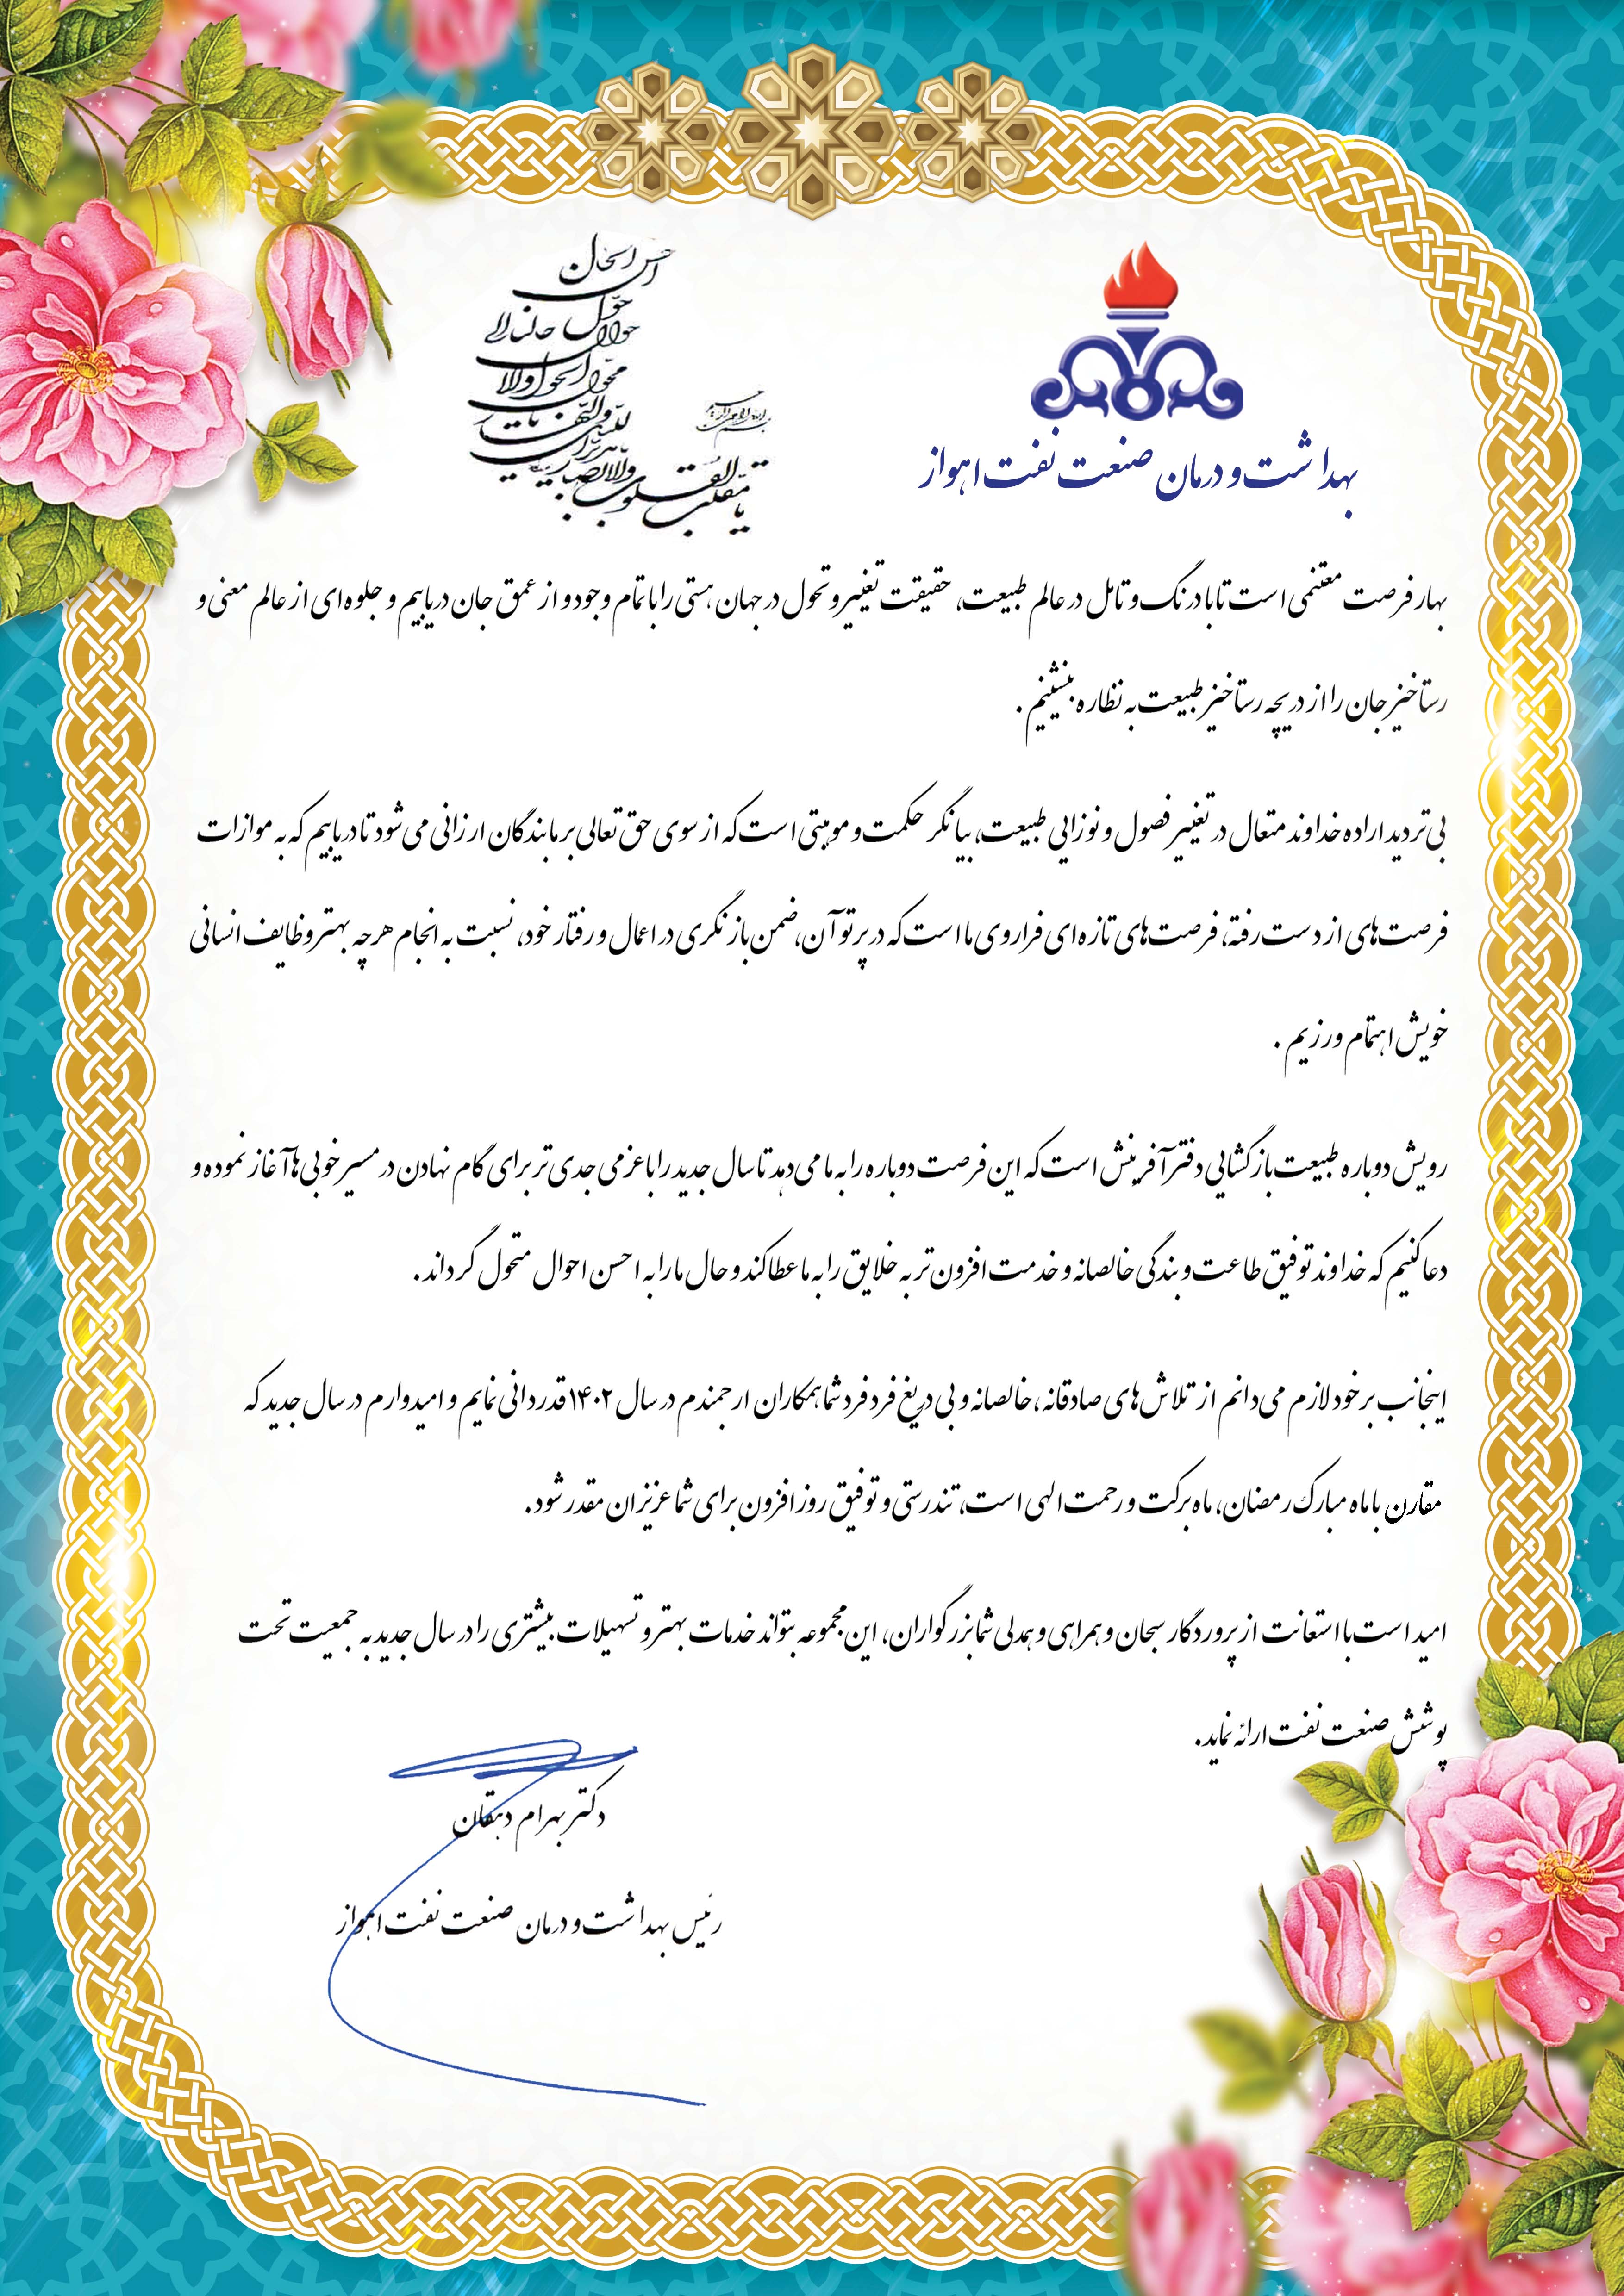 بهداشت و درمان صنعت نفت اهواز
بسم الله الرحمن الرحیم
یا مقلب القلوب
والابصار
یا مدبر اللیل
والنهار یا
محول الحول والا
حوال حول حالنا الی
احسن الحال
بهار فرصت مغتنمی است تا با درنگ و تامل در عالم طبیعت، حقیقت تغییر و تحول در جهان هستی را با تمام وجود و از عمق جان دریابیم و جلوه ای از عالم معنی و
رستاخیز جان را از دریچه رستاخیز طبیعت به نظاره بنشینیم .
بی تردید اراده خداوند متعال در تغییر فصول و نوزایی طبیعت، بیانگر حکمت و موهبتی است که از سوی حق تعالی بر ما بندگان ارزانی می شود تا دریابیم که به موازات
فرصت های از دست رفته، فرصت های تازه ای فراروی ما است که در پرتو آن، ضمن بازنگری در اعمال و رفتار خود، نسبت به انجام هرچه بهتر وظایف انسانی
خویش اهتمام ورزیم .
رویش دوباره طبیعت بازگشایی دفتر آفرینش است که این فرصت دوباره را به ما می دهد تا سال جدید را با عزمی جدی تر برای گام نهادن در مسیر خوبی ها آغاز نموده و
دعا کنیم که خداوند توفیق طاعت و بندگی خالصانه و خدمت افزون تر به خلایق را به ما عطا کند و حال ما را به احسن احوال متحول گرداند .
اینجانب بر خود لازم می دانم از تلاش های صادقانه ، خالصانه و بی دریغ فرد فرد شما همکاران ارجمندم در سال ۱۴۰۲ قدردانی نمایم و امیدوارم در سال جدید که
مقارن با ماه مبارک رمضان، ماه برکت و رحمت الهی است، تندرستی و توفیق روزافزون برای شما عزیزان مقدر شود.
امید است با استعانت از پروردگار سبحان و همراهی و همدلی شما بزرگواران، این مجموعه بتواند خدمات بهتر و تسهیلات بیشتری را در سال جدید به جمعیت تحت
پوشش صنعت نفت ارائه نماید.
دکتر بهرام دهقان
رئیس بهداشت و درمان صنعت نفت اهواز